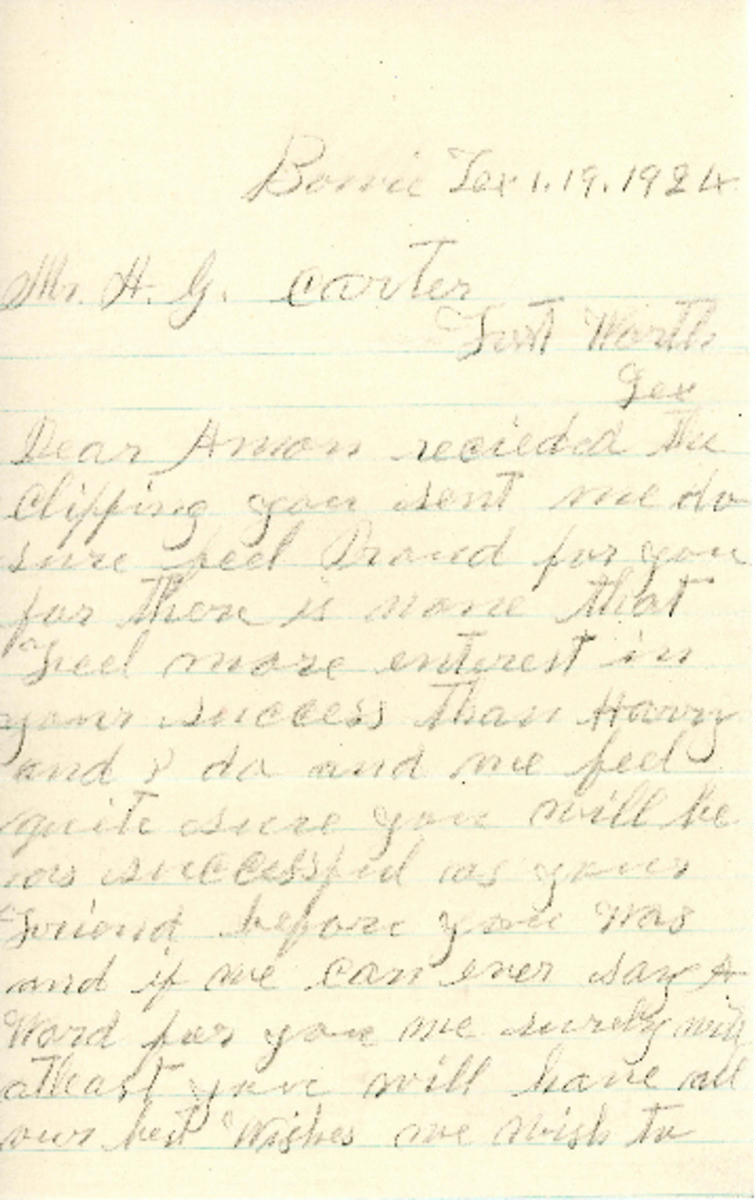 Bowie Tex 1.19.1924
Mr. H. G. Carter
Fort Worth
Tex
Dear Amon recieded the
Clipping you sent me do
sure feel Proud for you
for there is none that
Feel more enterest in
your success than Harry
and I do and we feel
quite sure you will be
as successful as your
Friend before you was
and if we can ever say A
Word for you we surely will
atleast you will have all
our best Wishes we wish to